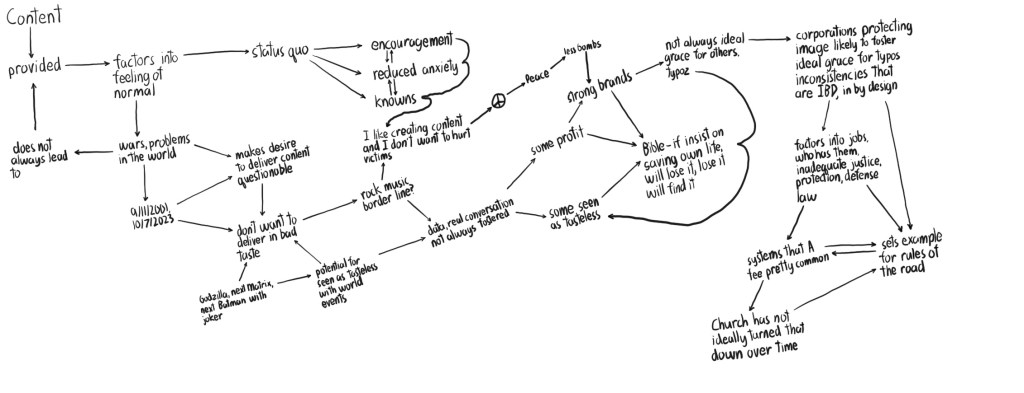 Content
provided
does not
always lead
to
factors into
feeling of
normal
wars, problems
in the world
9/11/2001,
10/7/2023
status quo
encouragement
reduced anxiety
knowns
makes desire
to deliver content
questionable
don't want to
deliver in bad
taste
Godzilla, next Matrix,
next Batman with
joker
potential for
seen as tasteless
with world
events
I like creating content
and I don't want to hurt
victims
rock music
border line?
data, real conversation
not always tolered
Peace
less bombs
strong brands
some profit
some seen
as tasteless
Bible-if insist on
saving own life,
will lose it, lose it
will find it
not always ideal
grace for others,
typoz
corporations protecting
image likely to foster
ideal grace for typos
inconsistencies that
are IBD, in by design
factors into jobs,
who has them,
inadequate justice,
protection, defense
law
systems that A
tee pretty common
sets example
for rules of
the road
Church has not
ideally turned that
down over time